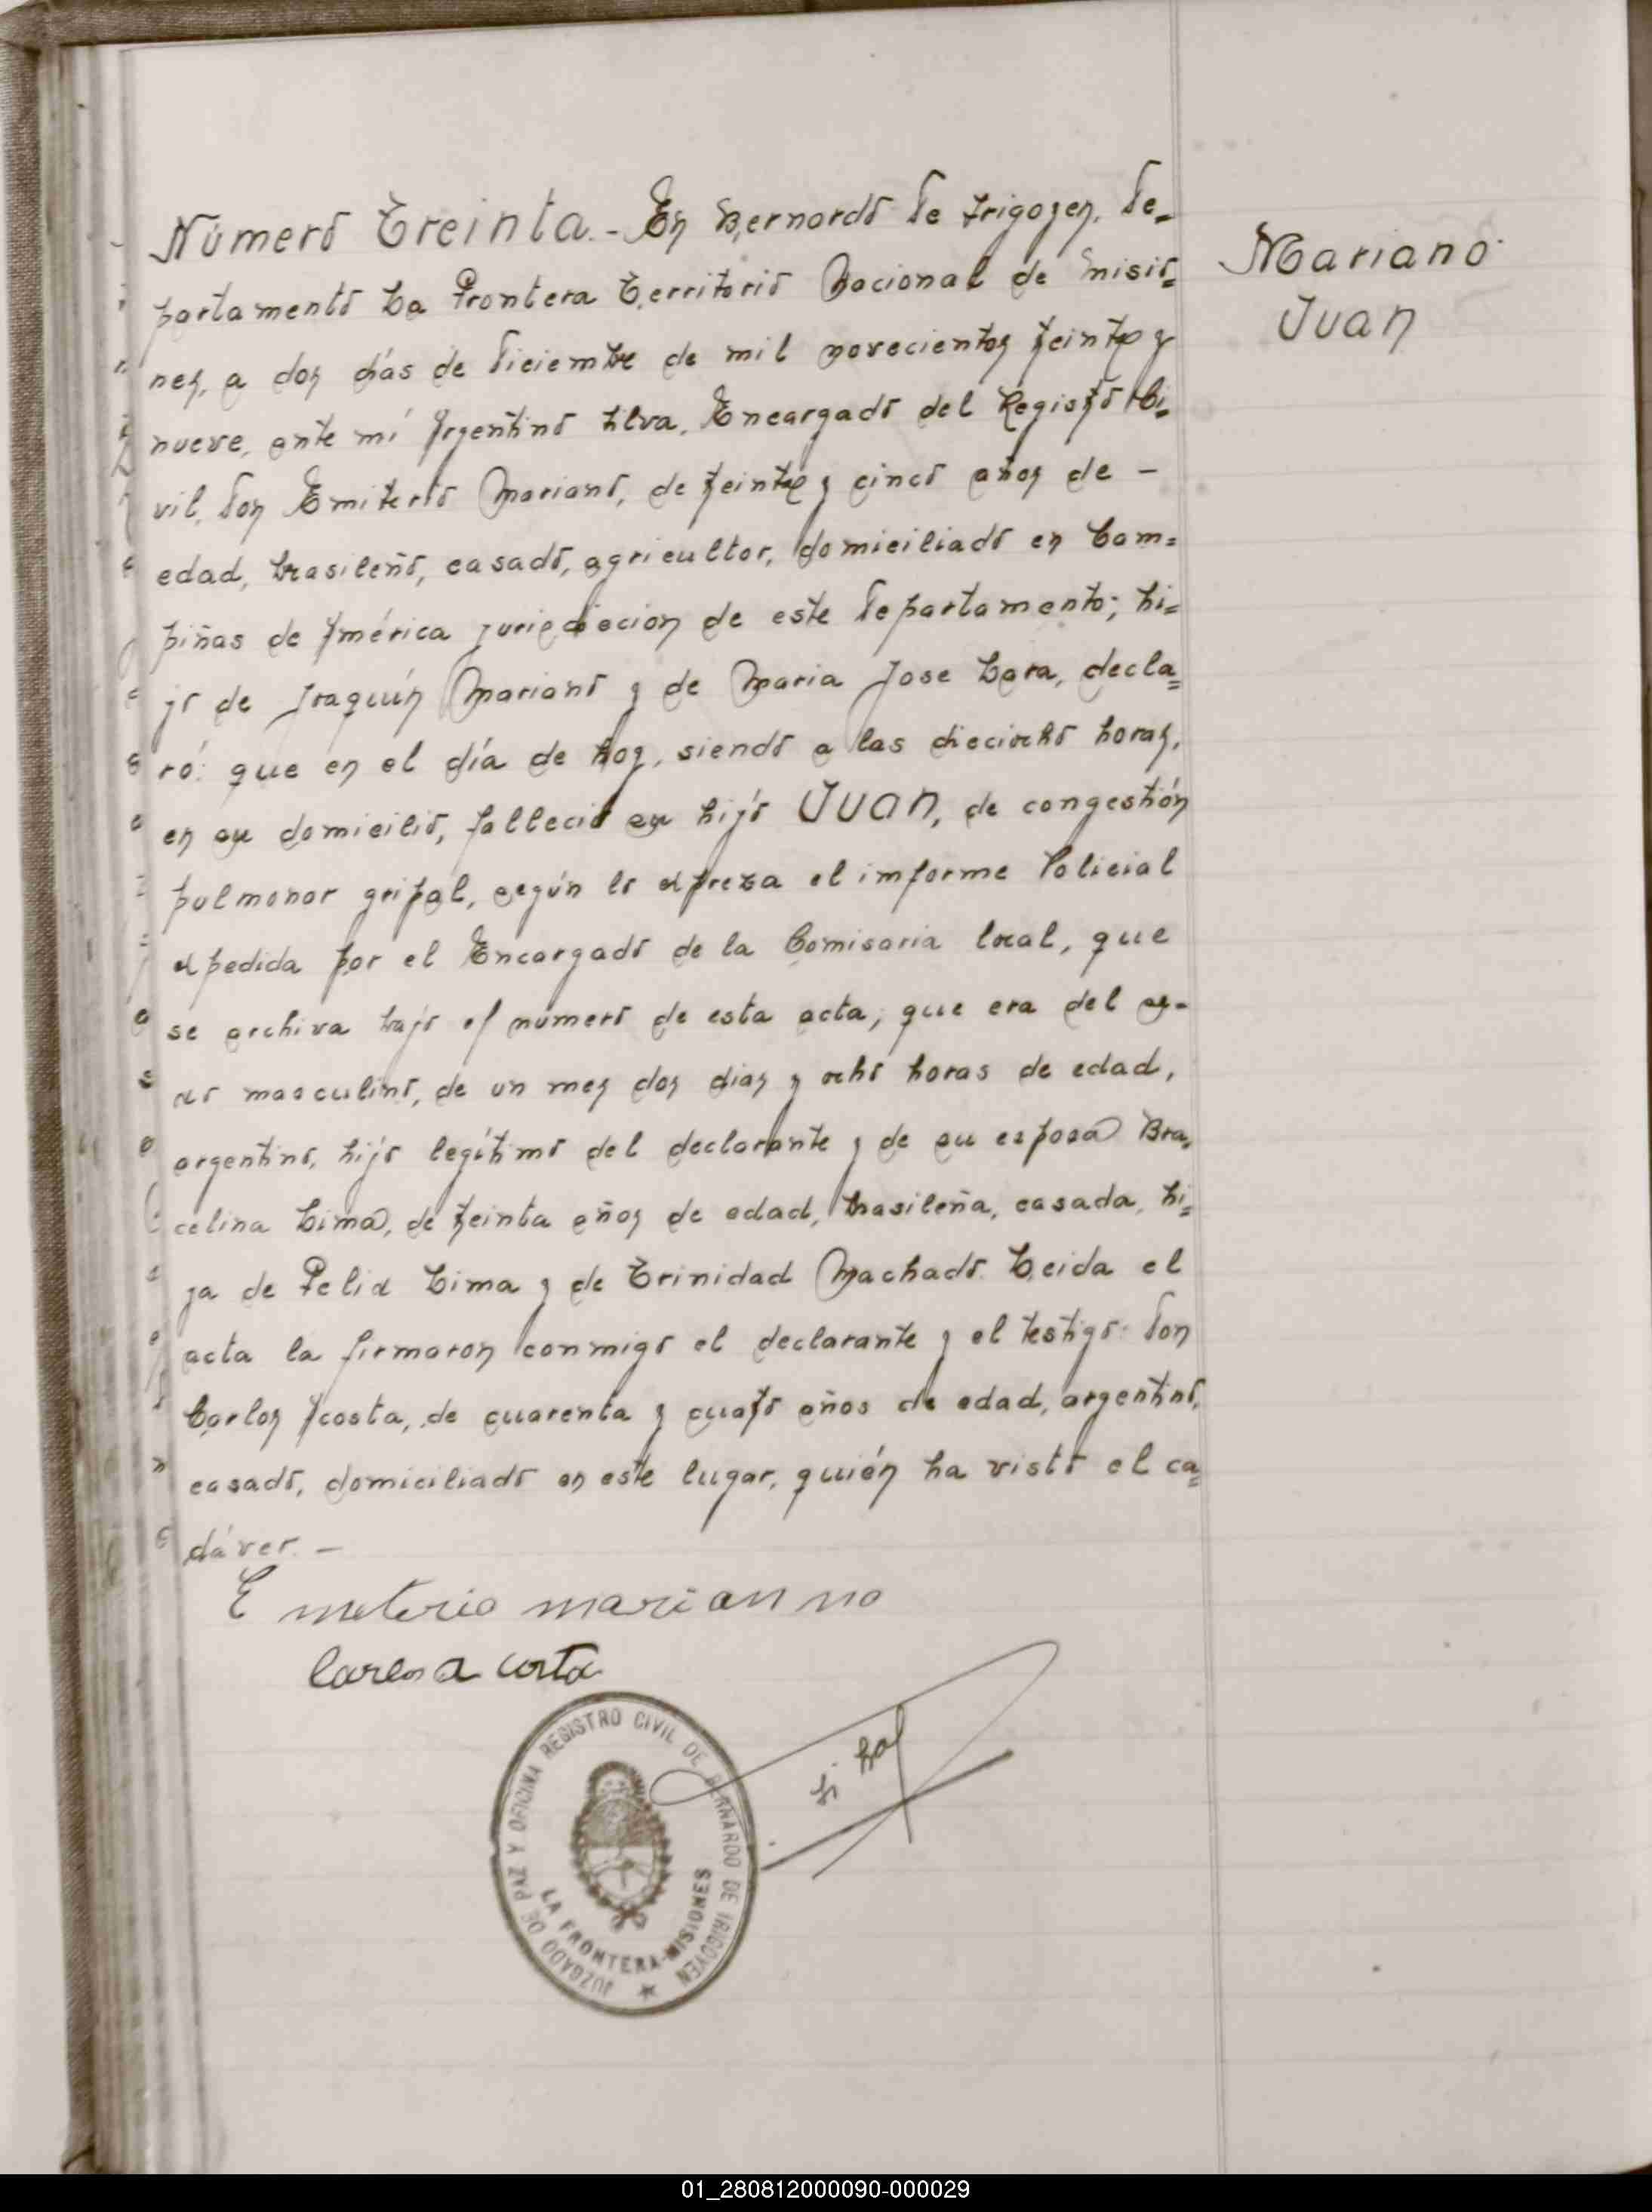 Número Treinta.- En Bernardo de Irigoyen, De-
partamento La Frontera Territorio Nacional de Misio=
nes, a dos días de Diciembre de mil novecientos treinta y
nueve, ante mí Argentino Silva, Encargado del Registro Ci=
vil, Don Emiterio Mariano, de treinta y cinco años de -
edad, brasileño, casado, agricultor, domiciliado en Cam=
piñas de América jurisdiccion de este Departamento; hi=
jo de Joaquín Mariano y de Maria Jose Lara, decla=
ró: que en el día de hoy, siendo a las dieciocho horas,
en su domicilio, falleció su hijo JUAN, de congestión
pulmonar gripal, según lo expresa el informe Policial
expedida por el Encargado de la Comisaria local, que
se archiva bajo el número de esta acta; que era del se-
xo masculino, de un mes dos dias y ocho horas de edad,
argentino, hijo legítimo del declarante y de su esposa Bra=
celina Lima, de treinta años de edad, brasileña, casada, hi=
ja de Felix Lima y de Trinidad Machado. Leida el
acta la firmaron conmigo el declarante y el testigo: Don
Carlos Acosta, de cuarenta y cuatro años de edad, argentino,
casado, domiciliado en este lugar, quién ha visto el ca=
dáver. -
Mariano
Juan
E meterio mariano no
Carlos A costa
JUZGADO DE PAZ Y OFICINA REGISTRO CIVIL DE BERNARDO DE IRIGOYEN
LA FRONTERA-MISIONES
01_280812000090-000029